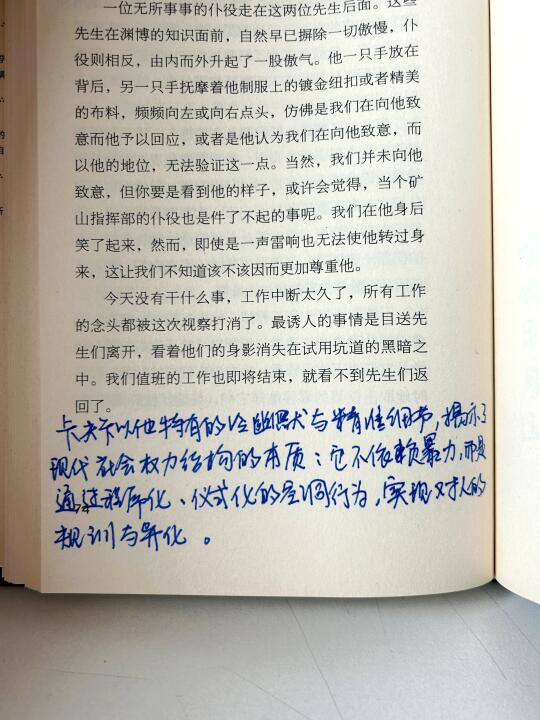 一位无所事事的仆役走在这两位先生后面。这些
先生在渊博的知识面前，自然早已摒除一切傲慢，仆
役则相反，由内而外升起了一股傲气。他一只手放在
背后，另一只手抚摩着他制服上的镀金纽扣或者精美
的布料，频频向左或向右点头，仿佛是我们在向他致
意而他予以回应，或者是他认为我们在向他致意，而
以他的地位，无法验证这一点。当然，我们并未向他
致意，但你要是看到他的样子，或许会觉得，当个矿
山指挥部的仆役也是件了不起的事呢。我们在他身后
笑了起来，然而，即使是一声雷响也无法使他转过身
来，这让我们不知道该不该因而更加尊重他。
今天没有干什么事，工作中断太久了，所有工作
的念头都被这次视察打消了。最诱人的事情是目送先
生们离开，看着他们的身影消失在试用坑道的黑暗之
中。我们值班的工作也即将结束，就看不到先生们返
回了。
卡夫卡以他特有的冷幽默式与精准细节，揭示了
现代社会权力结构的本质：它不依赖暴力，而是
通过程序化、仪式化的空洞行为，实现对人的
规训与异化。
74